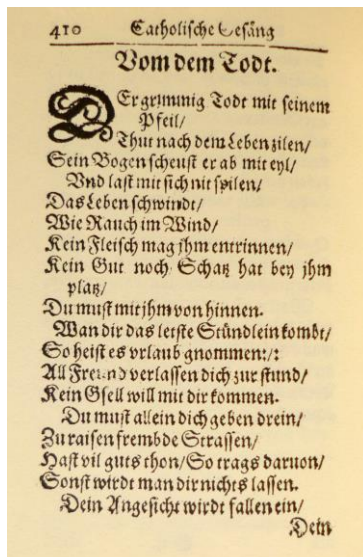 410 Catholische Gesäng
Vom dem Todt.
DEr grimmig Todt mit seinem
Pfeil/
Thut nach dem Leben zilen/
Sein Bogen scheust er ab mit eyl/
Vnd last mit sich nit spilen/
Das Leben schwindt/
Wie Rauch im Wind/
Kein Fleisch mag jhm entrinnen/
Kein Gut noch Schatz hat bey jhm
platz/
Du must mit jhm von hinnen.
Wan dir das letste Stündlein kombt/
So heist es vrlaub gnommen:/:
All Freund verlassen dich zur stund/
Kein Gsell will mit dir kommen.
Du must allein dich geben drein/
Zu raisen frembde Strassen/
Hast vil guts thon/ So trags daruon/
Sonst wirdt man dir nichts lassen.
Dein Angesicht wirdt fallen ein/
Dein